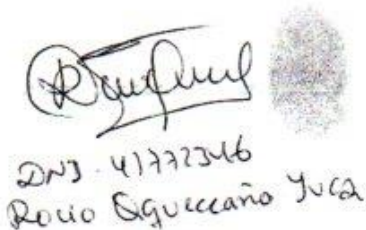 DNI - 41772346
Rocio Qqueccaño Yuca